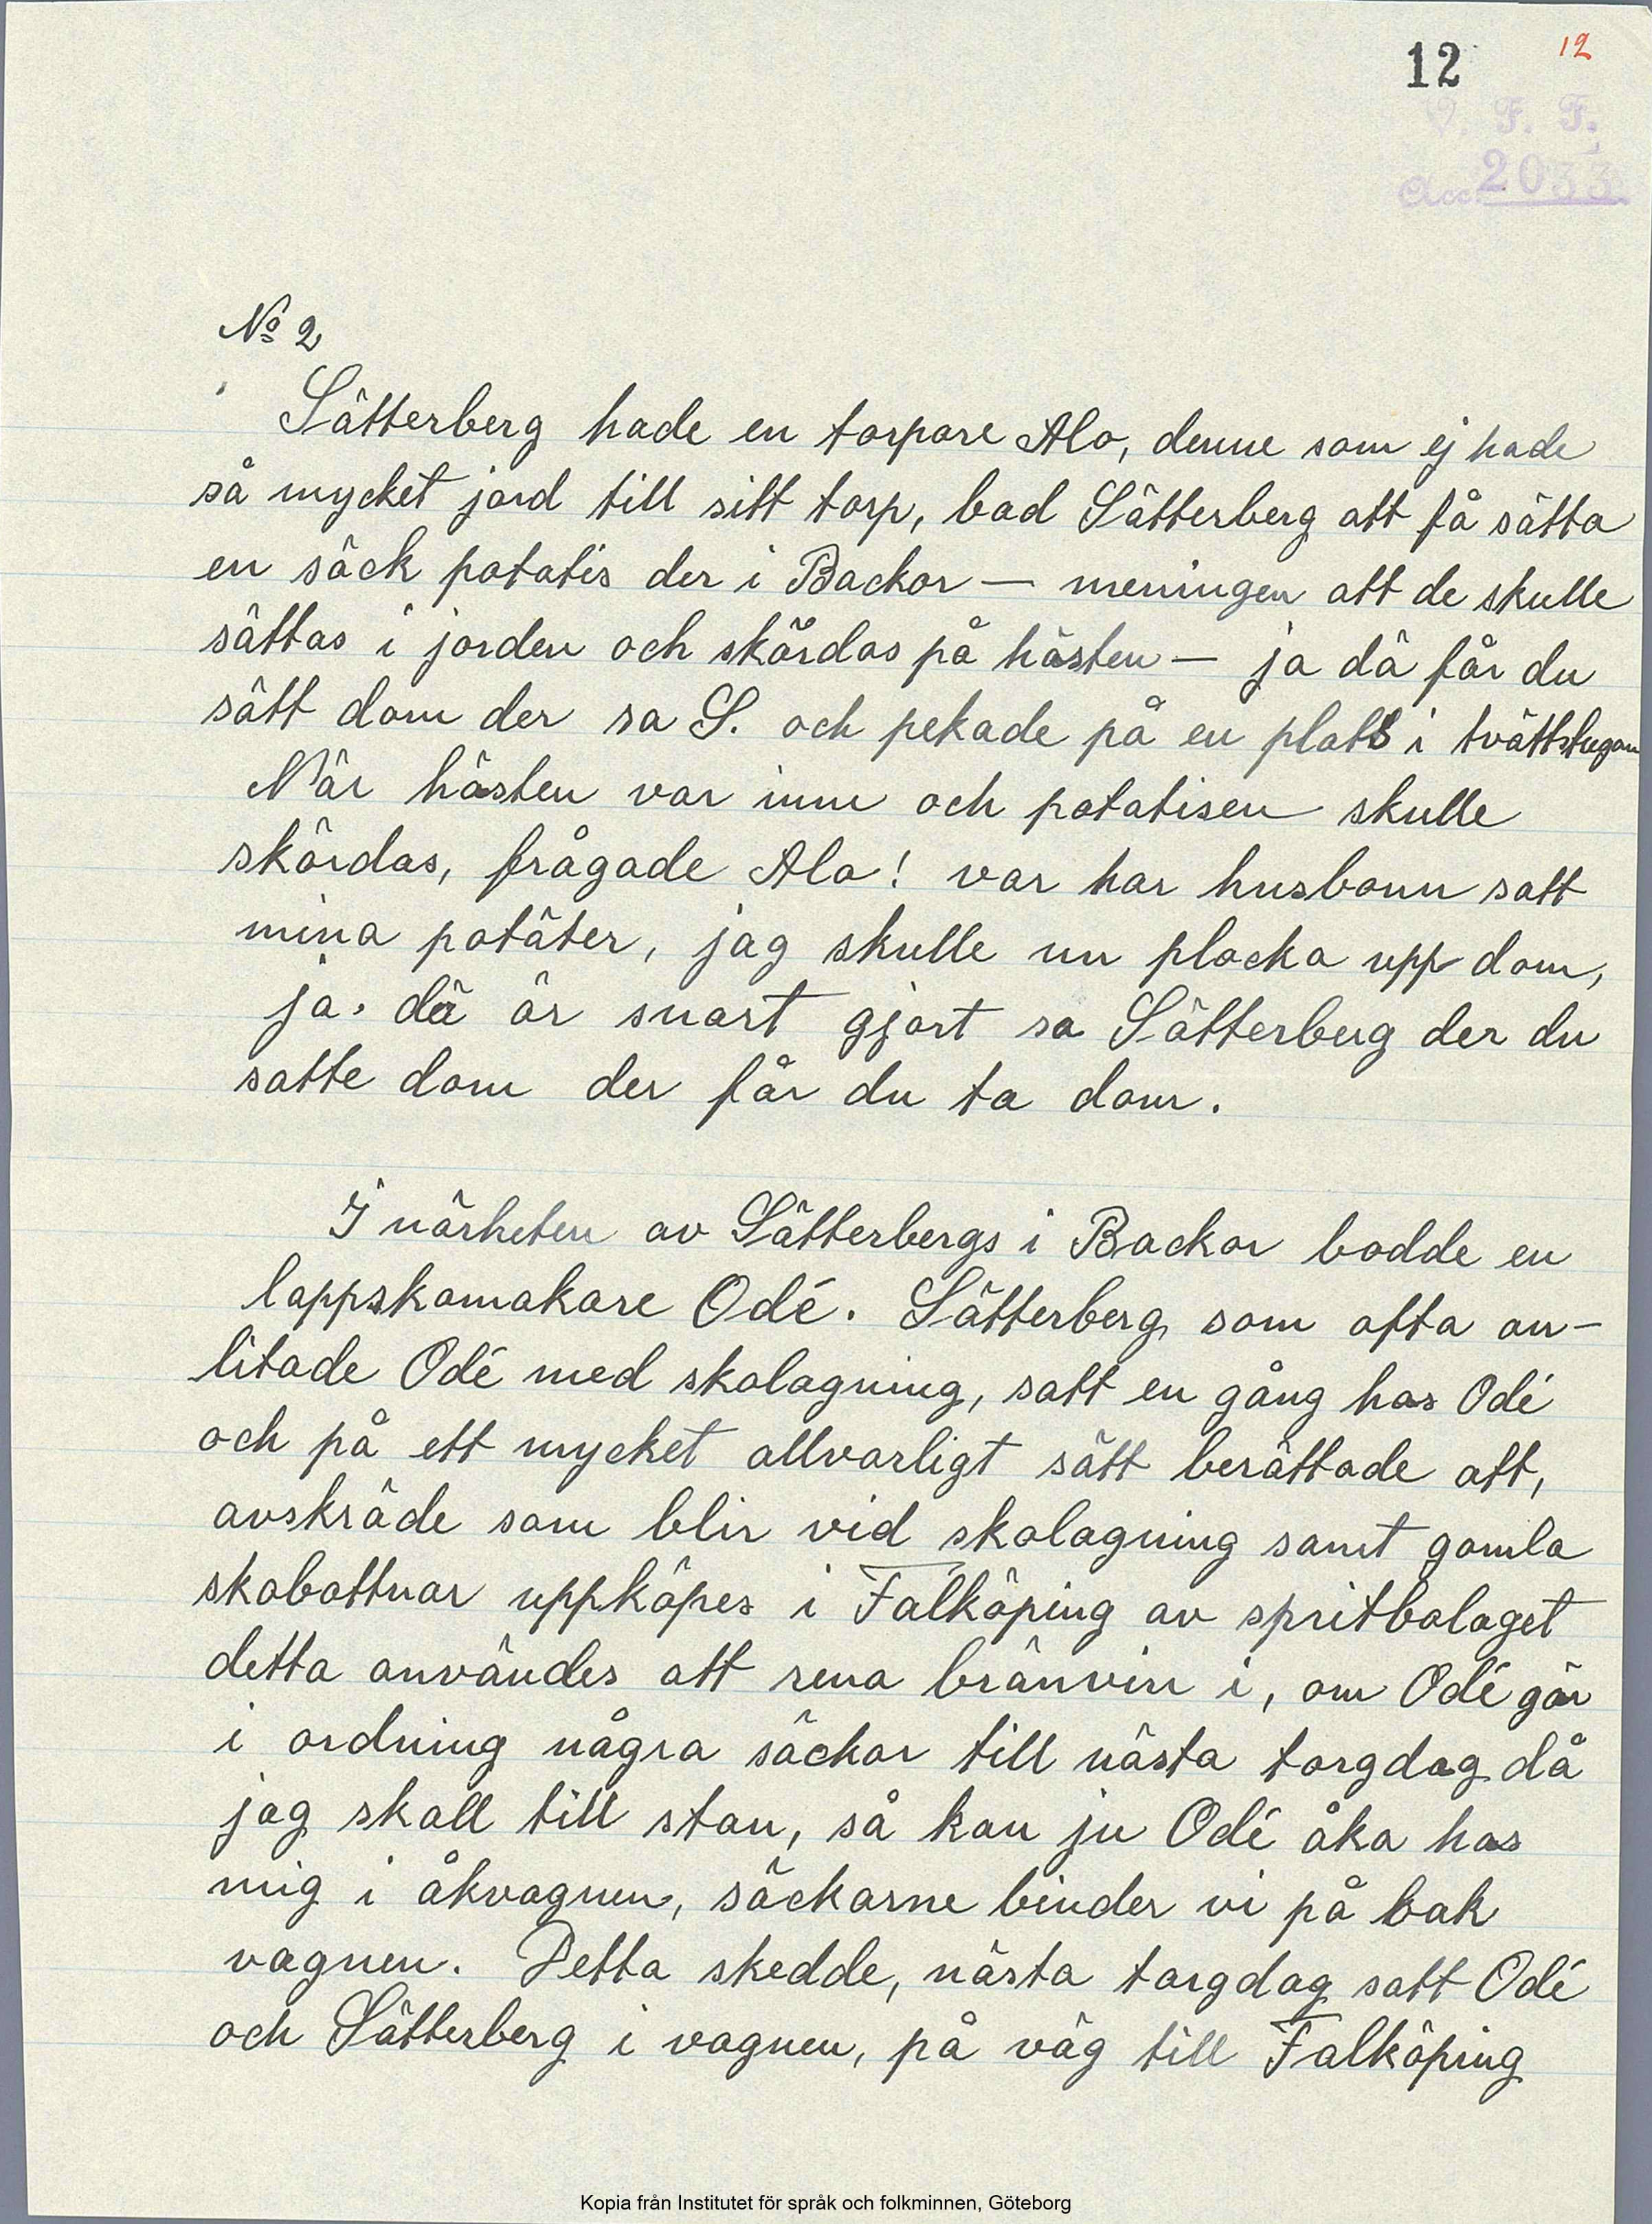 12 12
V. F. F.
Acc. 2033
No 2
Sätterberg hade en torpare Alo, denne som ej hade
så mycket jord till sitt torp, bad Sätterberg att få sätta
en säck potatis der i Backor — meningen att de skulle
sättas i jorden och skördas på hösten — ja då får du
sätt dom der sa S. och pekade på en plats i tvättstugan
När hösten var inne och potatisen skulle
skördas, frågade Alo! var har husbonn satt
mina potäter, jag skulle nu plocka upp dom,
ja. dä är snart gjort sa Sätterberg der du
satte dom der får du ta dom.
I närheten av Sätterbergs i Backor bodde en
lappskomakare Odé. Sätterberg som ofta an-
litade Odé med skolagning, satt en gång hos Odé
och på ett mycket allvarligt sätt berättade att,
avskräde som blir vid skolagning samt gamla
skobottnar uppköpes i Falköping av spritbolaget
detta användes att rena bränvin i, om Odé gör
i ordning några säckar till nästa torgdag då
jag skall till stan, så kan ju Odé åka hos
mig i åkvagnen, säckarne binder vi på bak
vagnen. Detta skedde, nästa torgdag satt Odé
och Sätterberg i vagnen, på väg till Falköping
Kopia från Institutet för språk och folkminnen, Göteborg